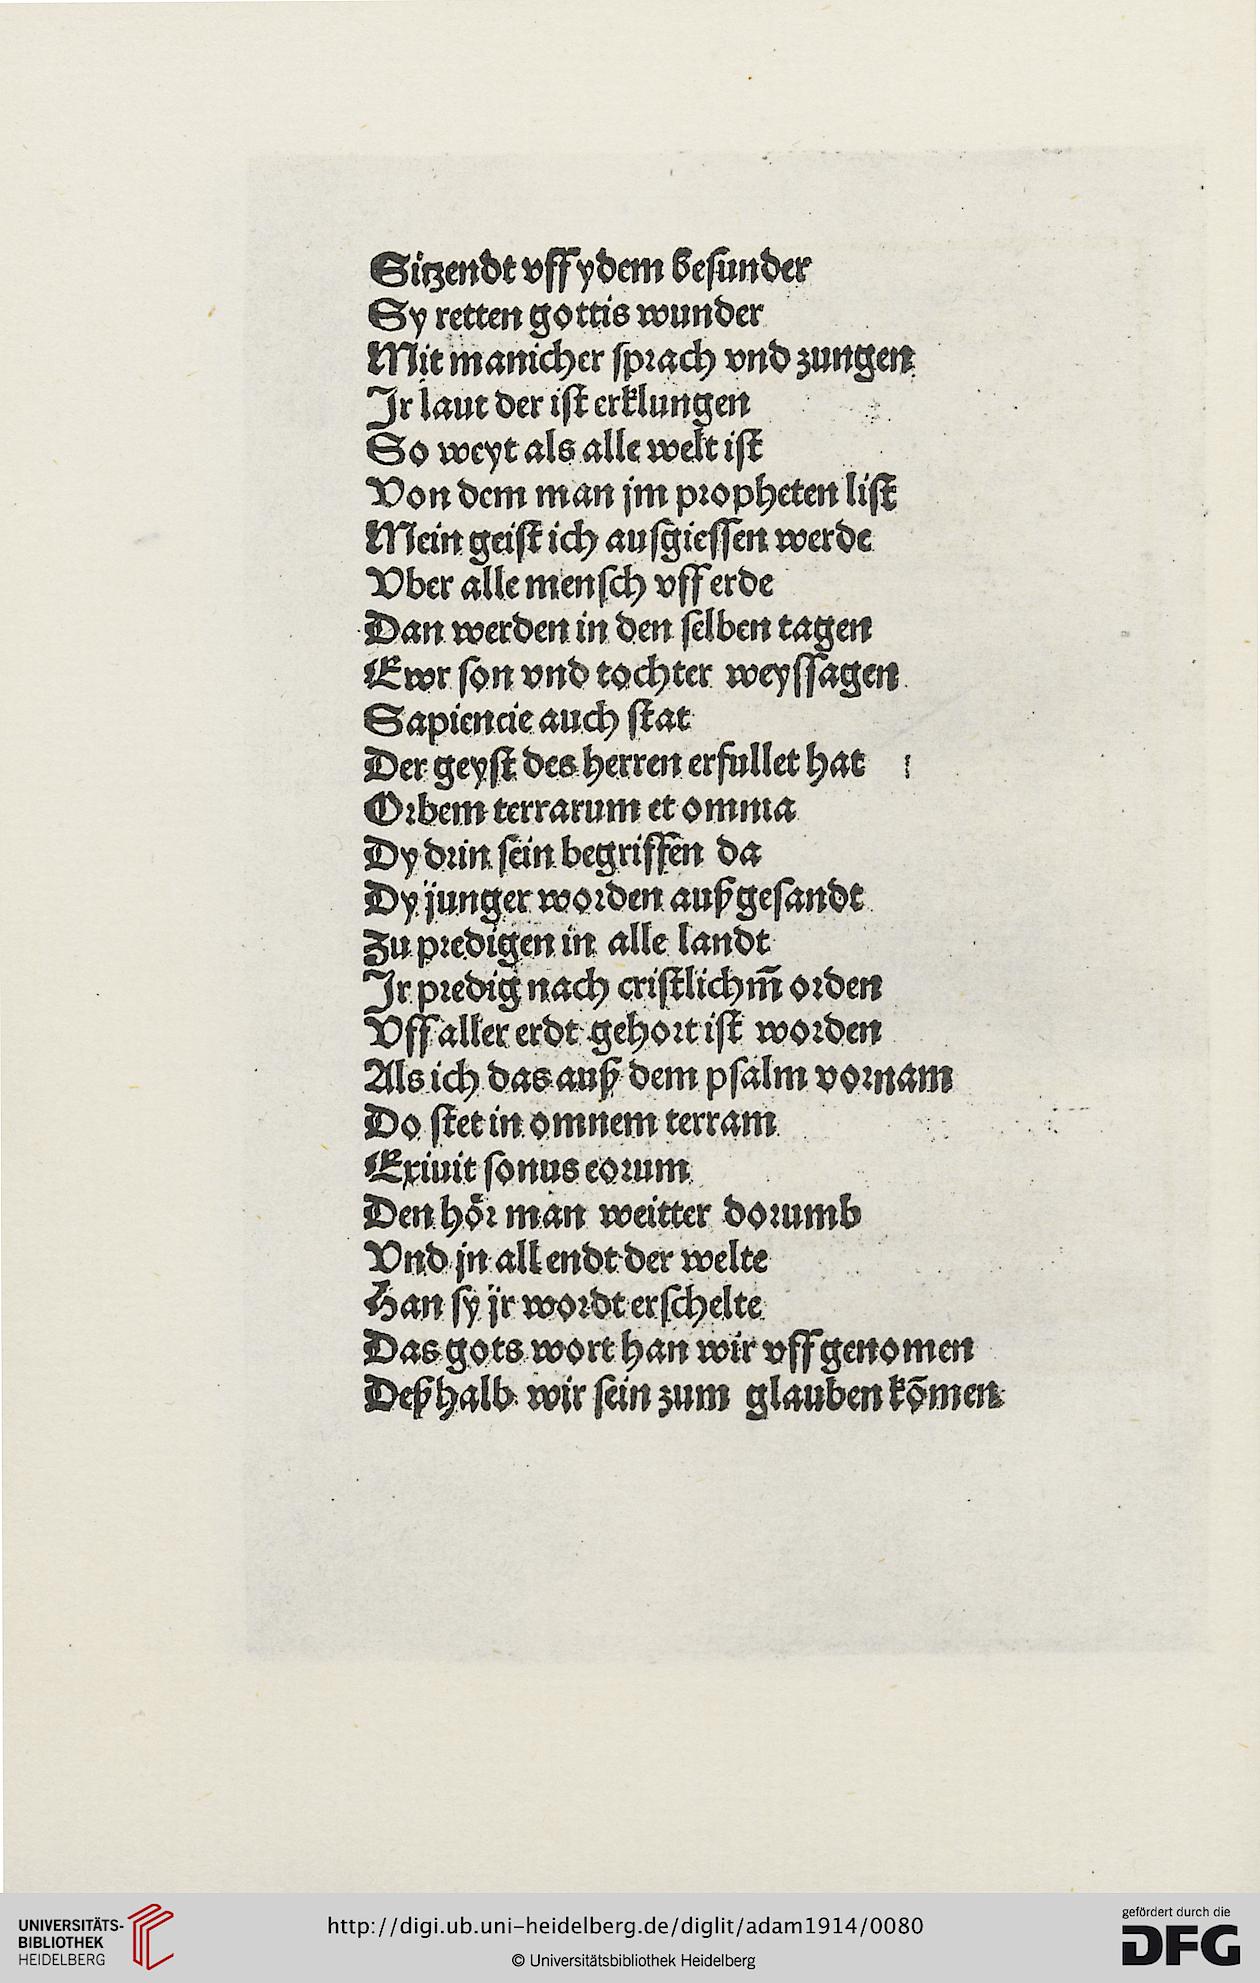 Sitzendt vff ydem besunder
Sy retten gottis wunder
Mit manicher sprach vnd zungen
Jr laut der ist erklungen
So weyt als alle welt ist
Von dem man jm propheten list
Mein geist ich ausgiessen werde
Vber alle mensch vff erde
Dan werden in den selben tagen
Ewr son vnd tochter weyssagen
Sapiencie auch stat
Der geyst des herren erfullet hat
Orbem terrarum et omnia
Dy drin sein begriffen da
Dy junger worden außgesandt
Zu predigen in alle landt
Jr predig nach cristlichm̄ orden
Vff aller erdt gehort ist worden
Als ich das auß dem psalm vornam
Do stet in omnem terram
Exiuit sonus eorum
Den hör man weitter dorumb
Vnd jn all endt der welte
Han sy jr wordt erschelte
Das gots wort han wir vff genomen
Deßhalb wir sein zum glauben kōmen
UNIVERSITÄTS-
BIBLIOTHEK
HEIDELBERG
http://digi.ub.uni-heidelberg.de/diglit/adam1914/0080
© Universitätsbibliothek Heidelberg
gefördert durch die
DFG